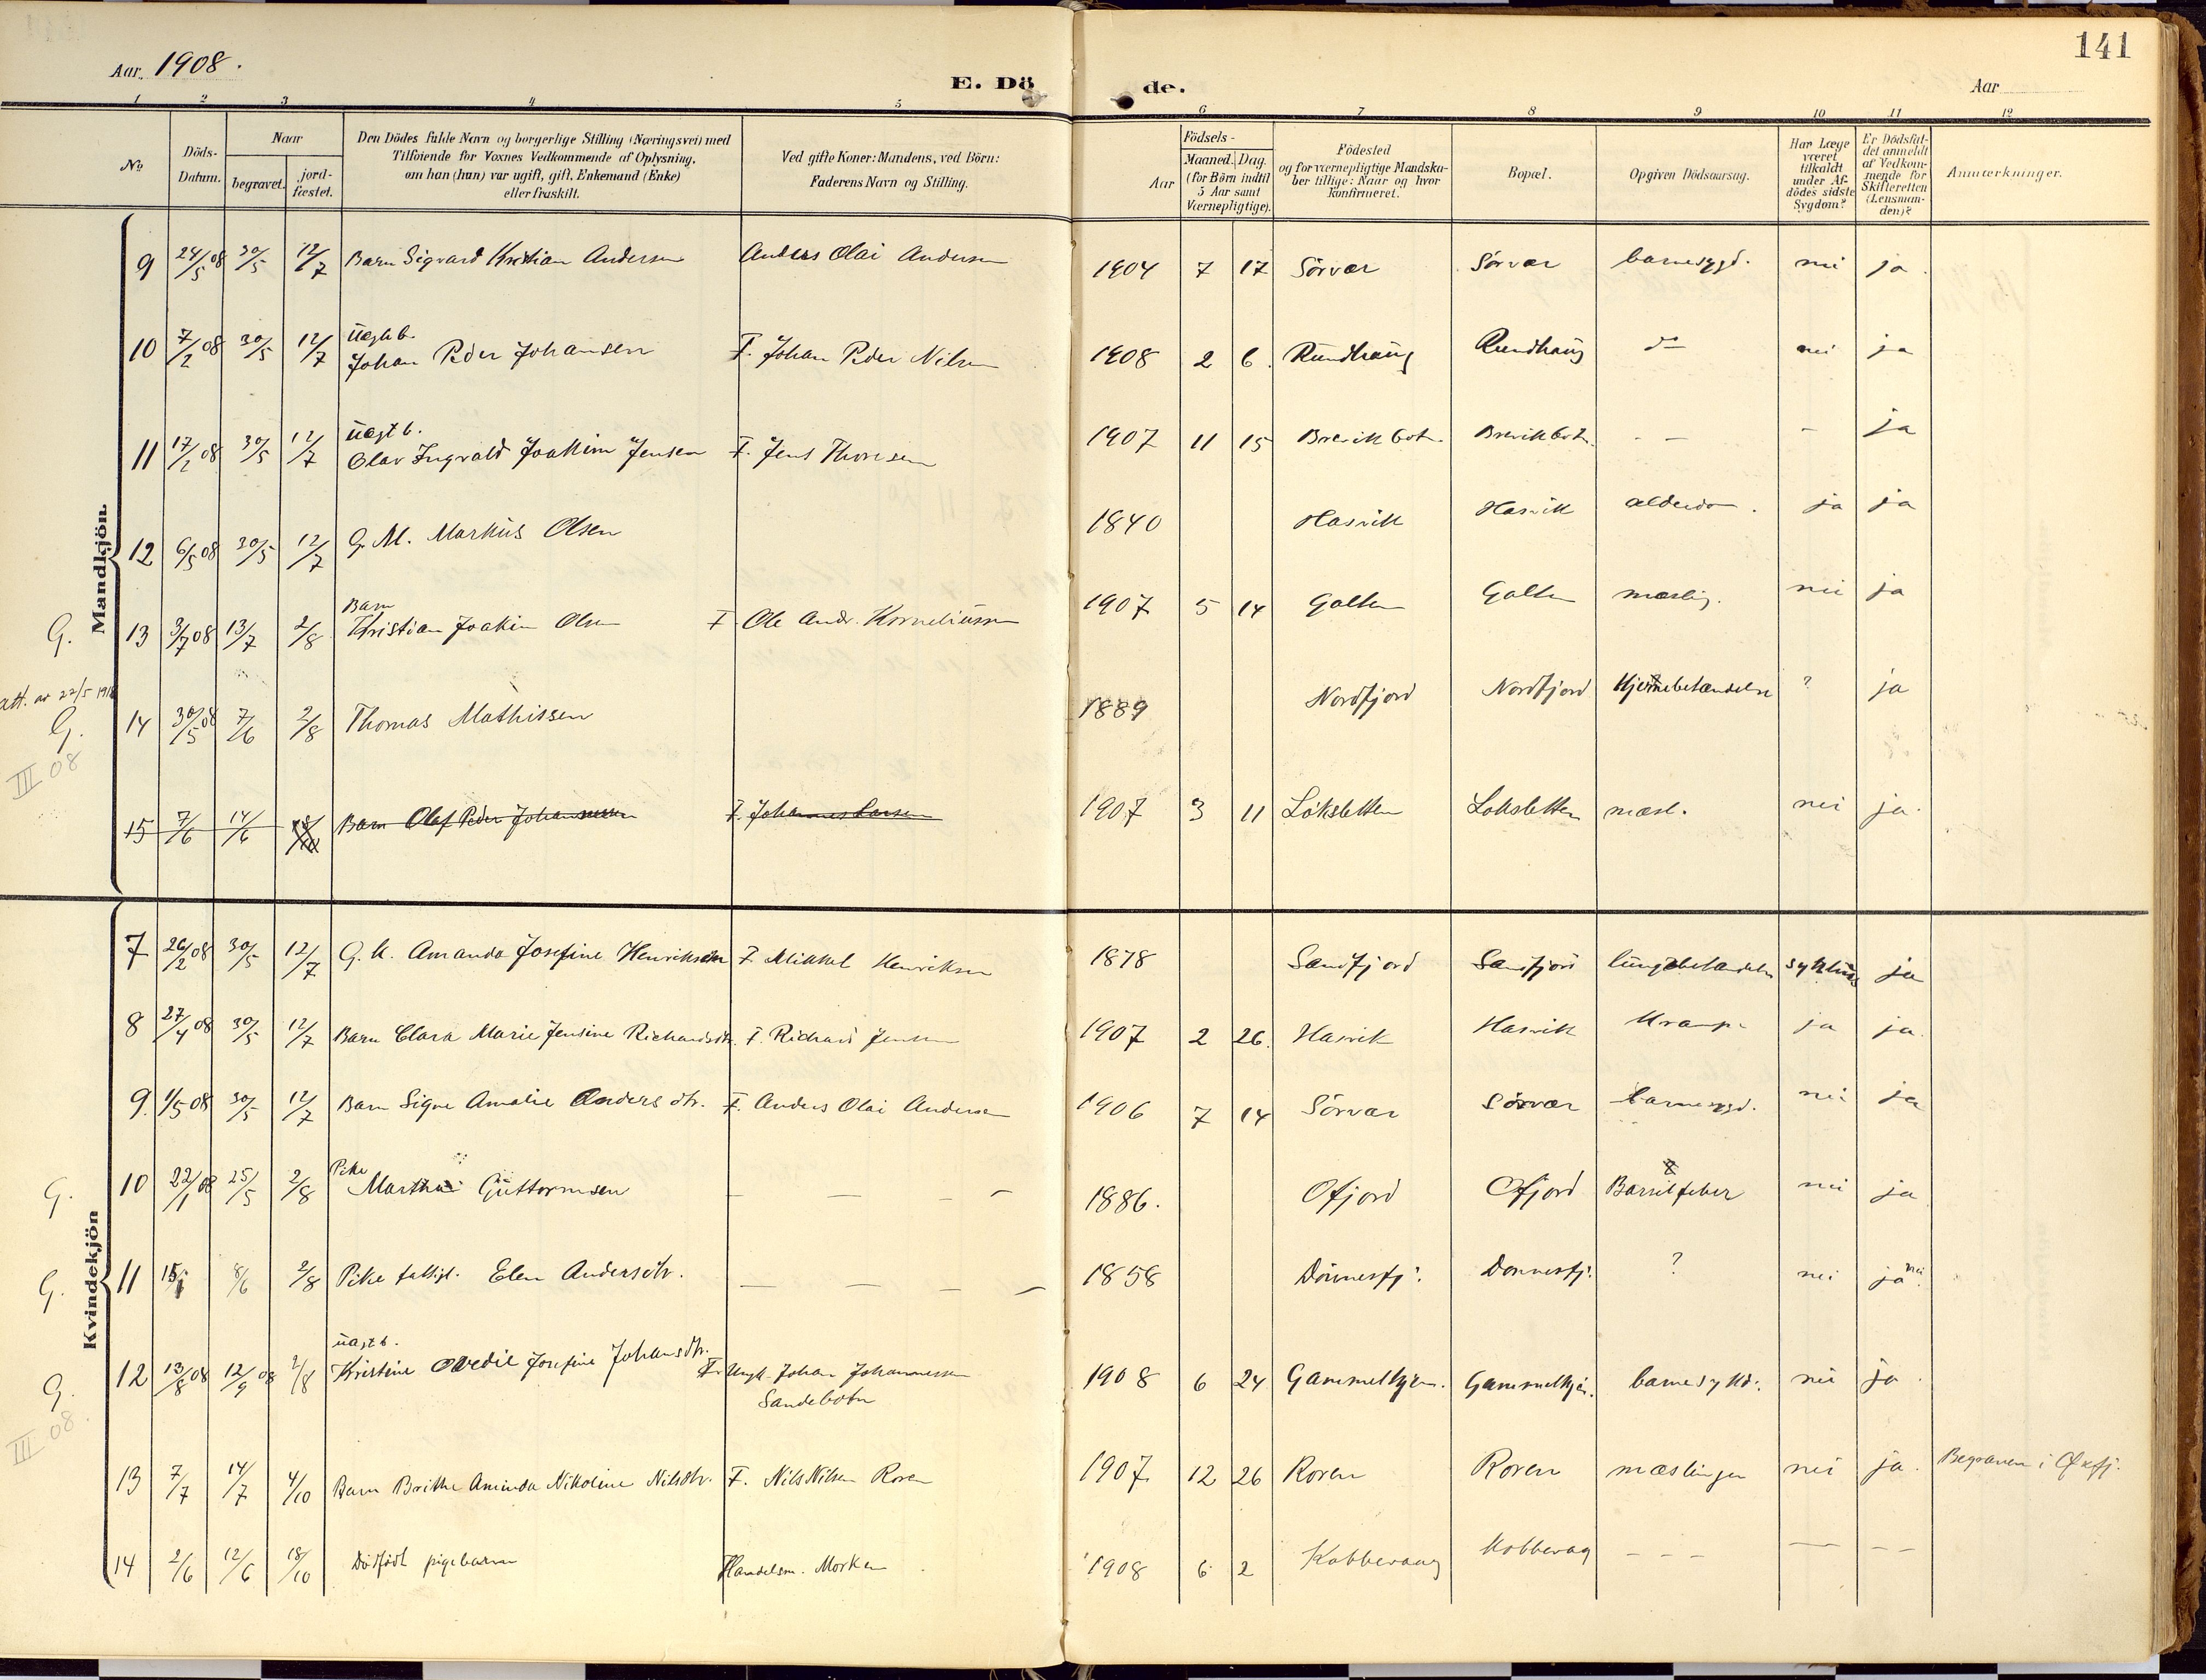 Aar 1908.
E. Dö de.
Aar
141
1 2 3 4 5 6 7 8 9 10 11 12
No
Döds-Datum.
Naar
begravet.
jord-fæstet.
Den Dödes fulde Navn og borgerlige Stilling (Næringsvei) med
Tilföiende for Voxnes Vedkommende af Oplysning,
om han (hun) var ugift, gift, Enkemand (Enke)
eller fraskilt.
Ved gifte Koner: Mandens, ved Börn:
Faderens Navn og Stilling.
Födsels-
Aar
Maaned. Dag.
(for Börn indtil
5 Aar samt
Værnepligtige).
Födested
og for værnepligtige Mandska-
ber tillige: Naar og hvor
konfirmeret.
Bopæl.
Opgiven Dödsaarsag.
Har Læge
været
tilkaldt
under Af-
dödes sidste
Sygdom?
Er Dödsfal-
det anmeldt
af Vedkom-
mende for
Skifteretten
(Lensman-
den)?
Anmærkninger.
Mandkjön.
9 24/5 08 30/5 12/7 Barn Sigvard Kristian Andersen Anders Olai Andersen 1904 7 17 Sörvær Sörvær barnesygd. nei ja.
10 7/2 08 30/5 12/7 uegt b. Johan Peder Johansen F. Johan Peder Nilsen 1908 2 6. Rundhaug Rundhaug do nei ja
11 17/2 08 30/5 12/7 uegt b. Olav Ingvald Joakim Jensen F. Jens Thoresen 1907 11 15 Brevikbotn. Brevikbotn. - - - ja
12 6/5 08 30/5 12/7 G. M. Markus Olsen 1840 Hasvik Hasvik alderdom. ja ja
G. 13 3/7 08 13/7 2/8 Barn Kristian Joakim Olsen F Ole Andr. Korneliussen 1907 5 14 Galten Galten mæsling. nei ja
att. av 22/5 1918
G. 14 30/5 08 7/6 2/8 Thomas Mathissen 1889 Nordfjord Nordfjord Hjernebetændelse ? ja
III 08
15 7/6 14/6 Barn Olaf Peder Johannessen F. Johannes Larsen 1907 3 11 Löksletten Loksletten mæsl. nei ja.
Kvindekjön
7 26/2 08 30/5 12/7 G. K. Amanda Josefine Henriksen F Mikkel Henriksen 1878 Sandfjord Sandfjord lungebetændelse sykehus ja
8 27/4 08 30/5 12/7 Barn Clara Marie Jensine Richardsdtr. F. Richard Jensen 1907 2 26. Hasvik Hasvik Krampe ja ja.
9. 1/5 08 30/5 12/7 Barn Signe Amalie Andersdtr. F. Anders Olai Andersen 1906 7 14 Sörvær Sörvær barnesygd. nei ja
G. 10 22/1 08 25/5 2/8 Pike Martha Guttormsen - - - - 1886. Ofjord Ofjord Barselfeber nei ja
G. 11 8/6 2/8 Pike fattigl. Elen Andersdtr. - - - - 1858 Dönnesfj. Donnesfj. ? nei ja nei.
G. 12 13/8 08 12/9 08 2/8 uegt b. Kristine Ovedie Josefine Johansdtr. F. Ungk. Johan Johannessen Sandebotn 1908 6 24 Gammelhjem. Gammelhjem. barnesykd. nei ja.
III 08.
13 7/7 14/7 4/10 Barn Brithe Aminda Nikoline Nilsdtr. F. Nils Nilsen Roren 1907. 12 26 Roren Roren mæslinger nei ja. Begraven i Øxfj.
14 2/6 12/6 18/10 Dödfödt pigebarn Handelsm. Morken 1908 6 2 Kobbevaag Kobbevag - - - - - -